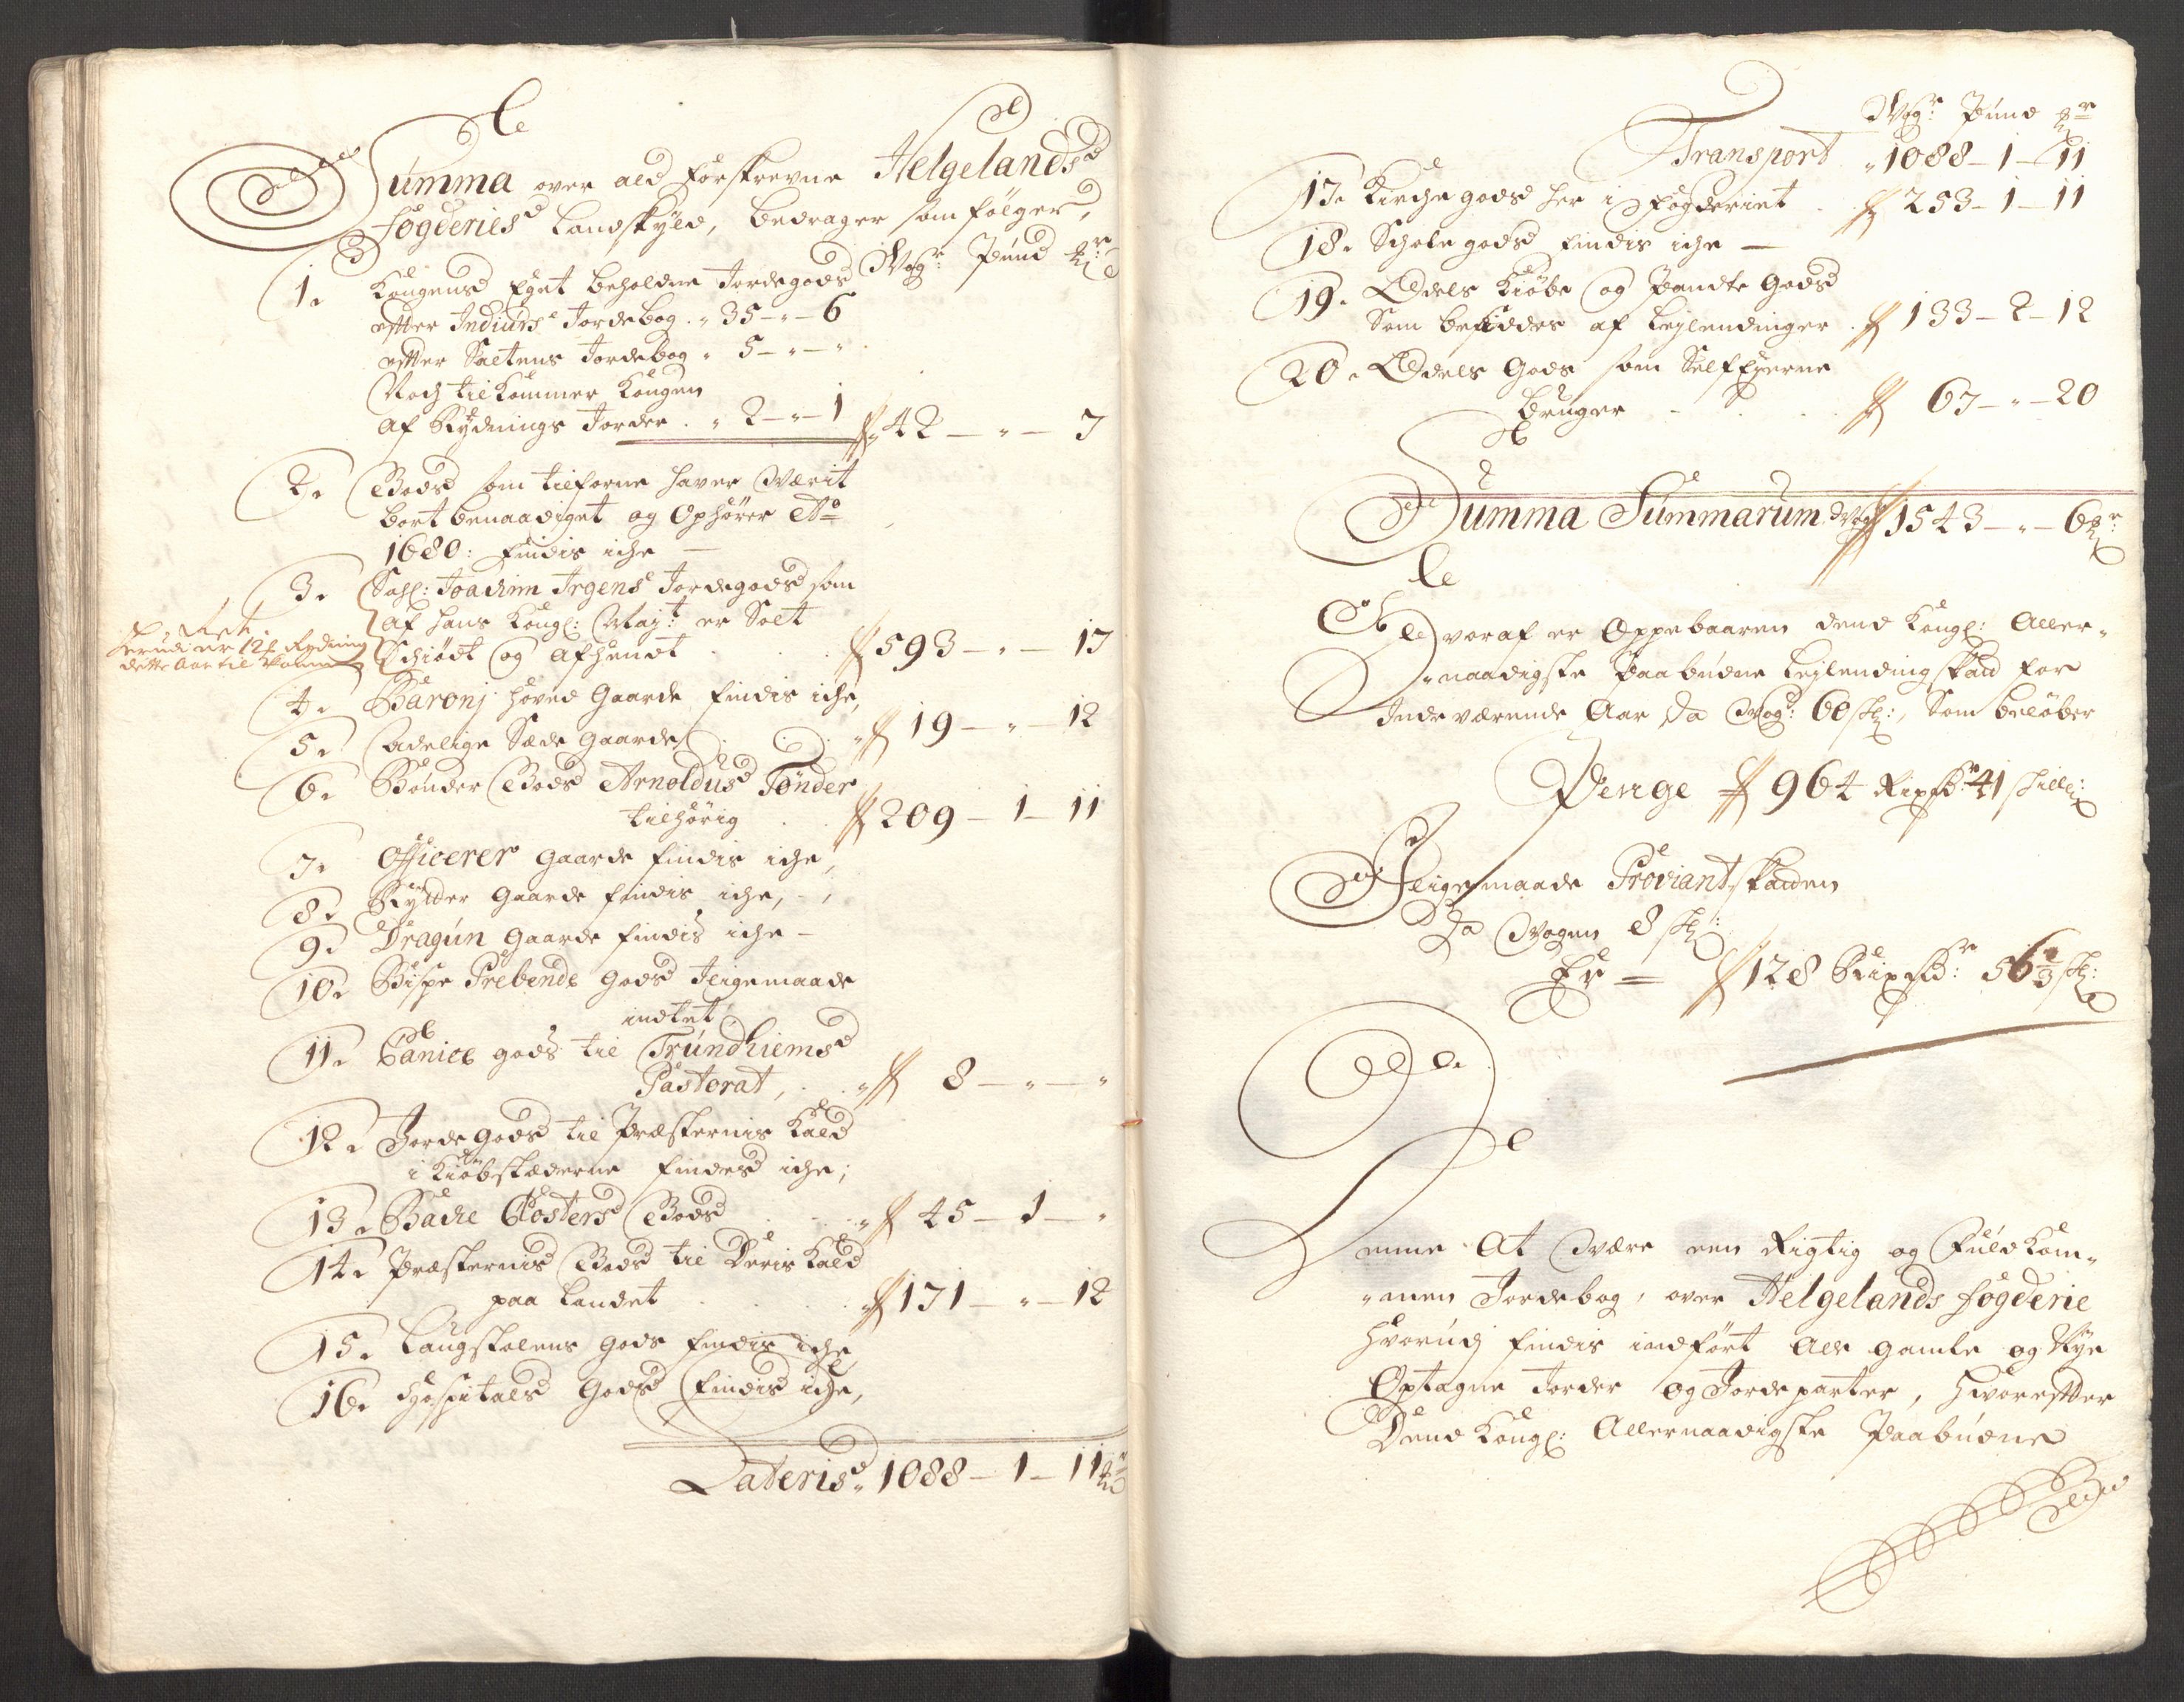 Summa over ald forskrevne Helgelands
fogderies Landskyld, bedrager som følger,
Woger Pund
1. Kongens Eget beholdne Jordegods
efter Indiuds Jordebog „ 35 — „ — 6
efter Saltens Jordebog „ 5 — „ — „
Noch tilkommer Kongen
af Rydnings Jorder „ 2 — „ — 1 42 — „ — 7
2. Gods som tilforne haver Værit
bort benaadiget og Ophører Ao
1680: findis iche —
3. Sahl: Joachim Irgens Jordegods som
af hans Kongl: Mayt: er Solt
Schiødt og afhendt 593 — „ — 17
herudi er 12 Rydning
dette Aar til
4. Baronj hoved Gaarde findis iche,
5. Adelige Sæde Gaarde 19 — „ — 12
6. Bønder Gods Arnoldus Tønder
tilhørig 209 — 1 — 11
7. Officerer Gaarde findis iche,
8. Rytter Gaarde findis iche,
9. Dragun Gaarde findis iche —
10. Bispe Prebende Gods Ligemaade
intet
11. Canice gods til Trundhiems
Pastorat, 8 — „ — „
12. Jorde Gods til Præsternis Kald
i Kiøbstæderne findes iche;
13. Bache Closters Gods 45 — 1 — „
14. Præsternis Gods til Deris Kald
paa Landet 171 — „ — 12
15. Laugstolens Gods findis iche
16. Hospitals Gods findis iche,
Lateris „ 1088 — 1 — 11
Woger Pund
Transport „ 1088 — 1 — 11
17. Kirche gods her i fogderiet 253 — 1 — 11
18. Schole gods findis iche —
19. Odels Kiøbe og Pandte Gods
Som besiddes af Lejlendinger 133 — 2 — 12
20. Odels Gods som Selfejerne
bruger 67 — „ — 20
Summa Summarum Wog 1543 — „ — 6
hvoraf er Oppebaaren dend Kongl: Aller„
„naadigste Paabudne Lejlending skat for
Indeværende Aar Ja Wog: 60 sk:, Som beløber
Penge 964 Rixdr 41 skill:
Ligemaade Proviant skatten
Ja Wogen 8 sk:
Er — 128 Rixdr: 56 2/3 sk:
Denne At være een Rigtig og Fuldkom„
„men Jordebog, over Helgelands fogderie
hvorudj findis indført all gamle og Nye
Optagne Jorder og Jordeparter, hvorefter
Dend Kongl: Allernaadigste Paabudne